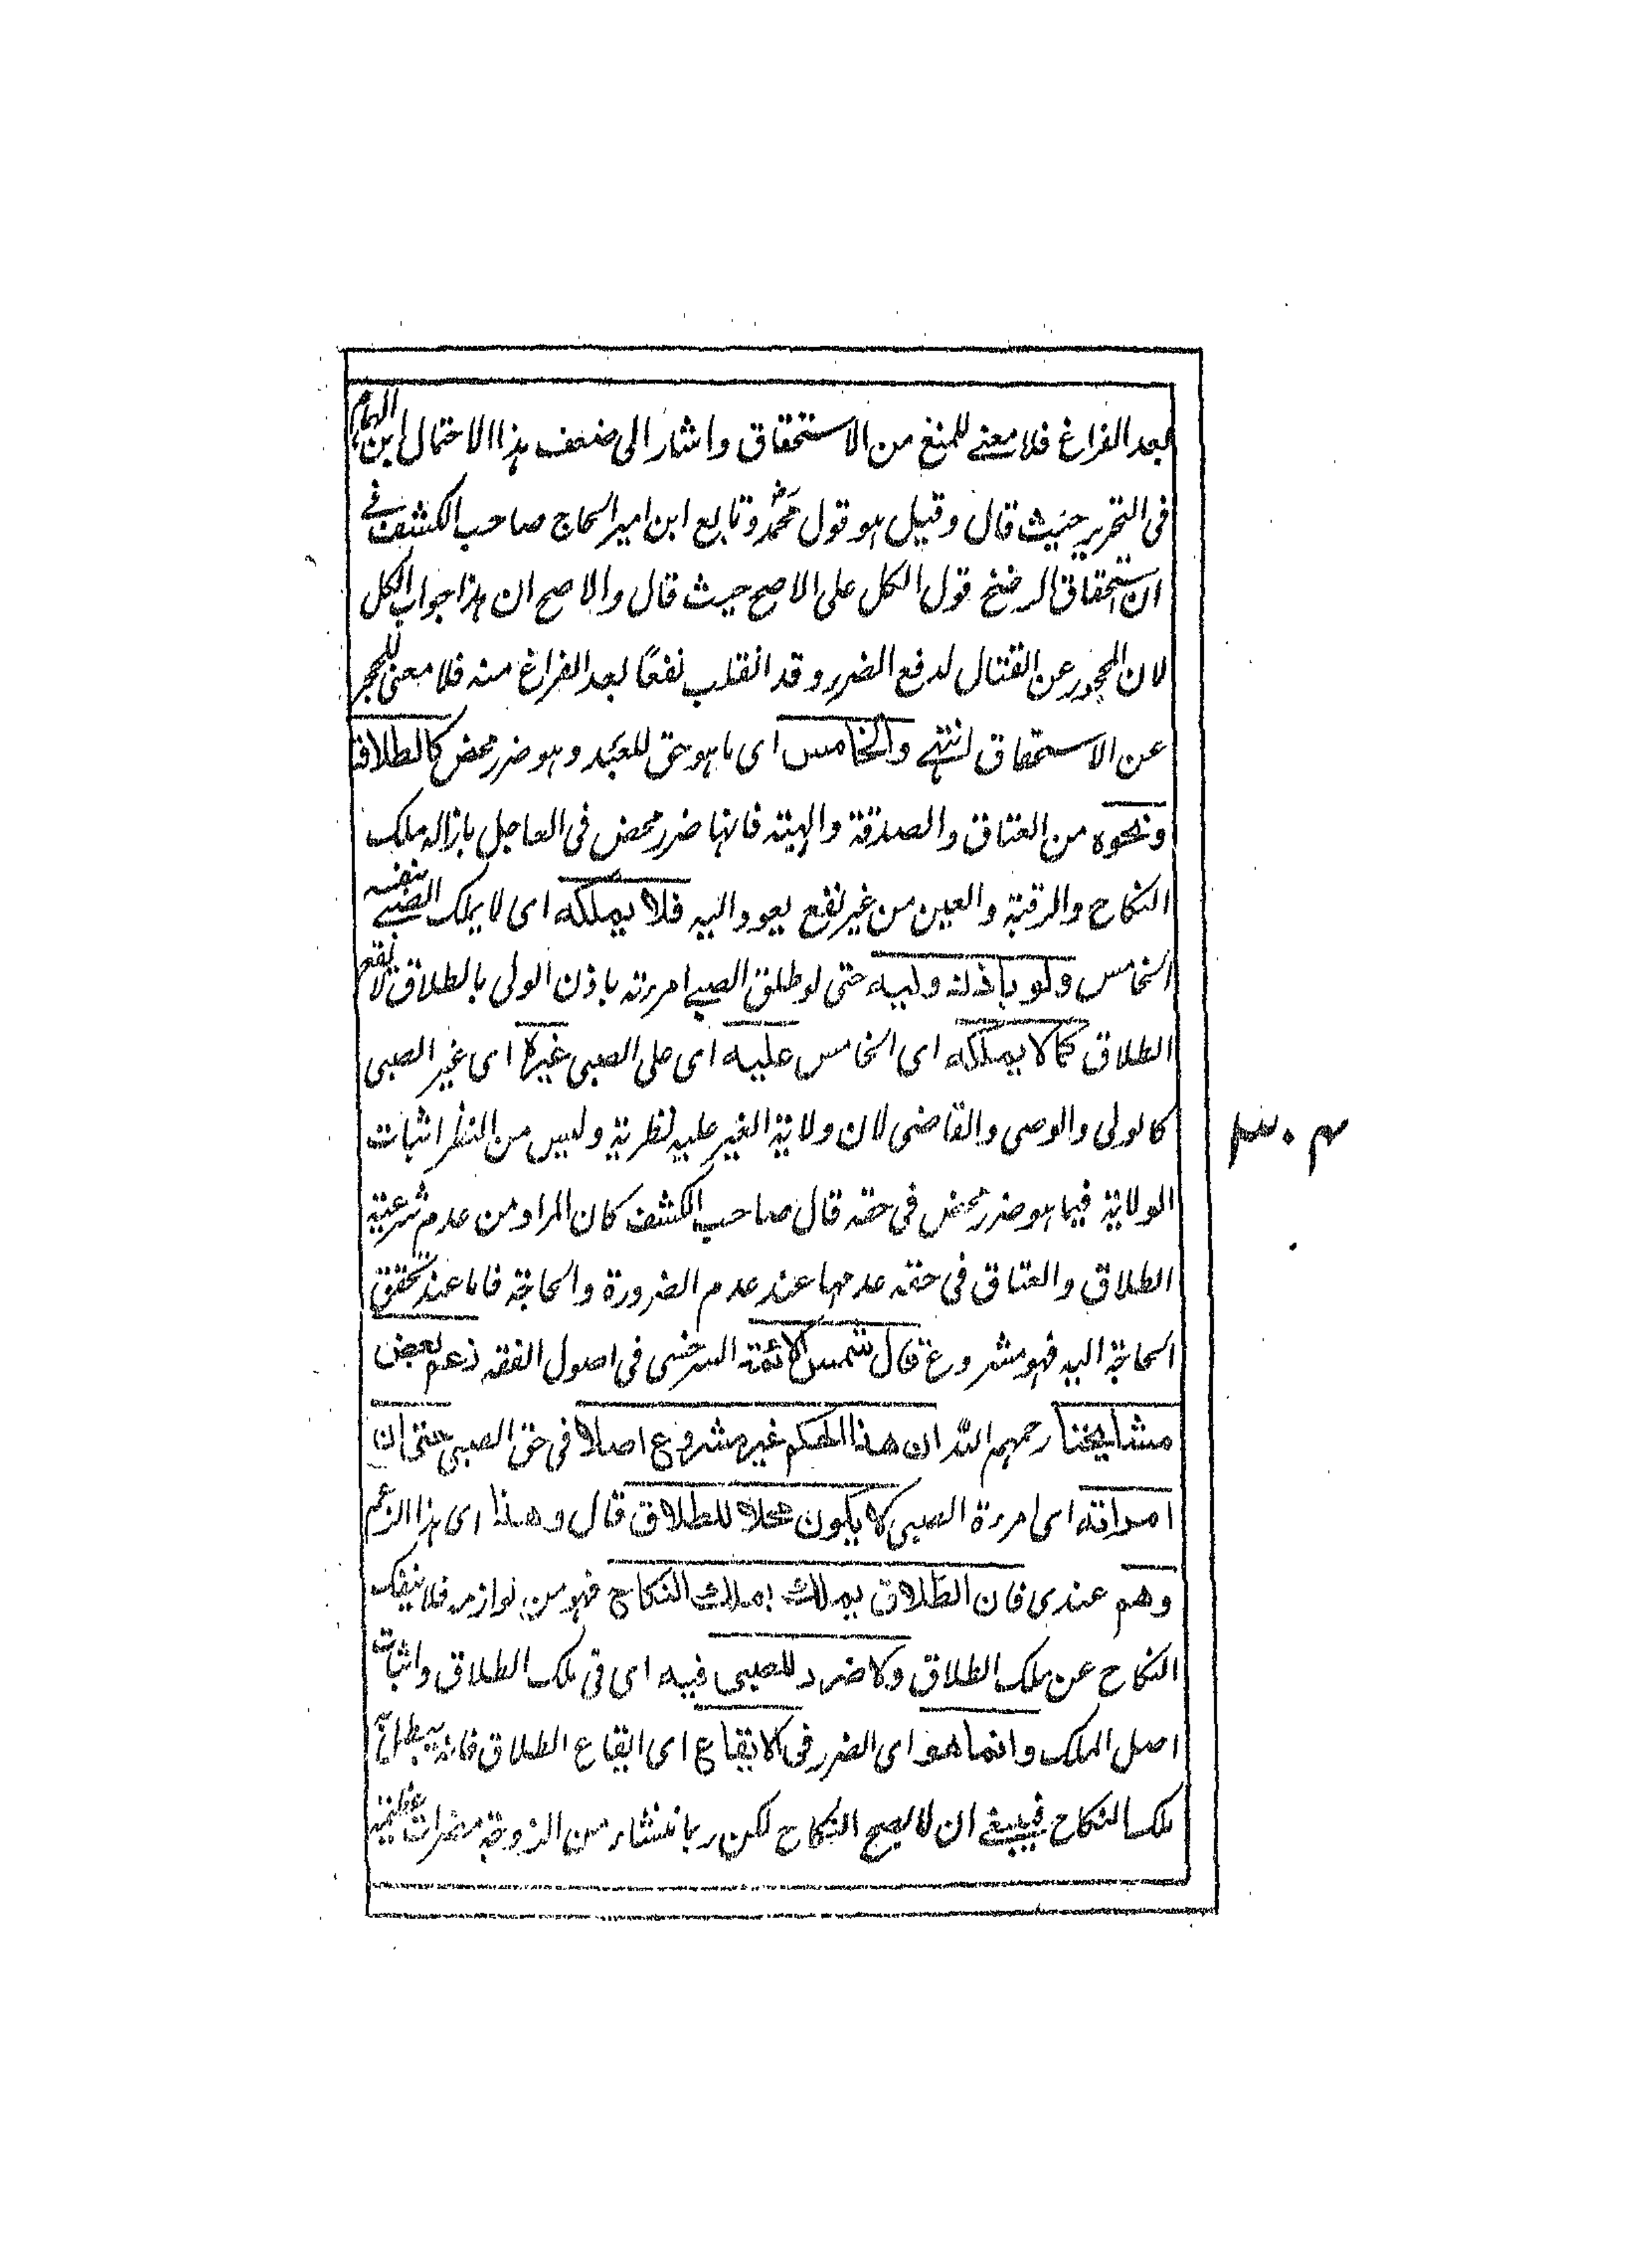 بعد الفراغ فلا معنے للمنع من الاستحقاق واشار الى ضعف هذا الاحتمال ابن الهمام
فى التحرير حيث قال وقيل هو قول محمدؒ وتابع ابن امير الحاج صاحب الكشف فے
ان استحقاق الرضخ قول الكل على الاصح حيث قال والاصح ان هذا جواب الكل
لان المحجور عن القتال لدفع الضرر وقد انقلب نفعًا بعد الفراغ منه فلا معنى للحجر
عن الاستحقاق انتهے والخامس اى ما هو حق للعبد وهو ضرر محض كالطلاق
ونحوه من العتاق والصدقة والهبة فانها ضرر محض فى العاجل بازالة ملك
النكاح والرقبة والعين من غير نفع يعود اليه فلا يملكه اى لا يملك الصبے بنفسه
الخامس ولو باذن وليه حتى لو طلق الصبے امرءته باذن الولى بالطلاق لا يقع
الطلاق كما لا يملكه اى الخامس عليه اى على الصبى غيره اى غير الصبى
كالولى والوصى والقاضى لان ولاية الغير عليه نظرية وليس من النظر اثبات
الولاية فيما هو ضرر محض فى حقه قال صاحب الكشف كان المراد من عدم شرعية
الطلاق والعتاق فى حقه عدمها عند عدم الضرورة والحاجة فاما عند تحقق
الحاجة اليه فهو مشروع قال شمس الائمة السرخسى فى اصول الفقه زعم بعض
مشايخنا رحمهم الله ان هذا الحكم غير مشروع اصلا فى حق الصبى حتى ان
امراته اى امرءة الصبى لا يكون محلا للطلاق قال وهذا اى هذا الزعم
وهم عندى فان الطلاق يملك بملك النكاح فهو من لوازمه فلا ينفك
النكاح عن ملك الطلاق ولا ضرر للصبى فيه اى فى ملك الطلاق واثبات
اصل الملك وانما هو اى الضرر فى الايقاع اى ايقاع الطلاق فانه يبطل به
ملك النكاح فينبغے ان لا يصح النكاح لكن ربما تنشاء من الزوجة مضرات عظيمة
٣٠٢